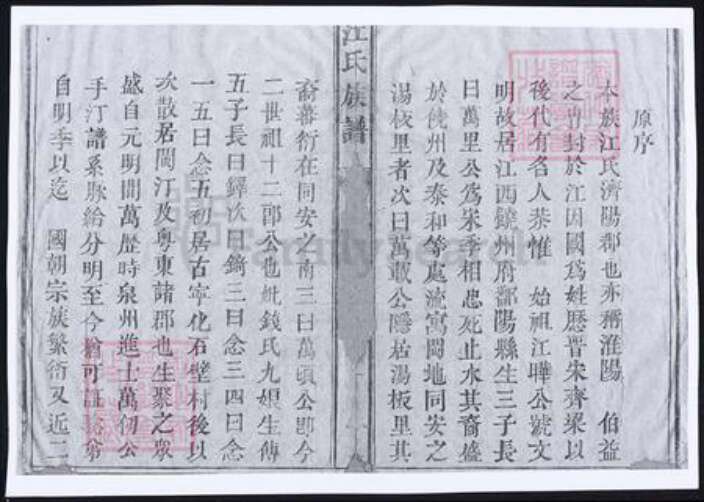 原序
本族江氏濟陽郡也亦稱淮陽 伯益
之 封於江因國為姓歷晉宋齊梁以
後代有名人恭惟 始祖江曄公號文
明故居江西饒州府鄱陽縣生三子長
曰萬里公為宋季相忠死止水其裔盛
於饒州及泰和等處流寓閩地同安之
湯板里者次曰萬載公隱居湯板里其
江氏族譜
裔蕃衍在同安之南三曰萬頃公即今
二世祖十二郎公也妣錢氏九娘生傳
五子長曰鐸次曰錡三曰念三四曰念
一五曰念五初居古寧化石壁村後以
次散居閩汀及粵東諸郡也生聚之眾
盛自元明間萬歷時泉州進士萬仞公
手汀譜系脉給分明至今猶可 第
自明季以迄 國朝宗族繁衍又近二